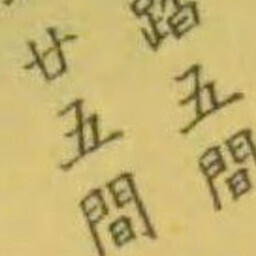 踏五間
廿五間